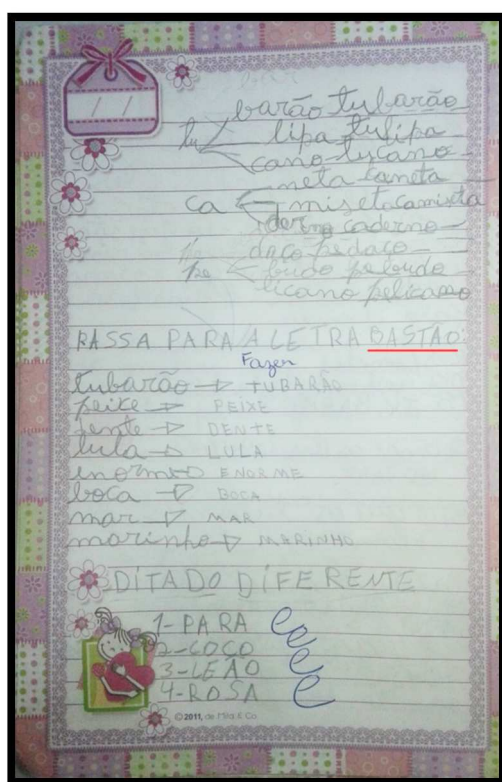 barão tubarão
tu lipa tulipa
cano tucano
neta caneta
ca miseta camiseta
derno caderno
daço pedaço
pe ludo peludo
licano pelicano
PASSA PARA A LETRA BASTÃO:
Fazer
tubarão → TUBARÃO
peixe → PEIXE
dente → DENTE
lula → LULA
enorme → ENORME
boca → BOCA
mar → MAR
marinho → MARINHO
DITADO DIFERENTE
1-PARA
2-COCO
3-LEÃO
4-ROSA
© 2011, de Mila & Co.